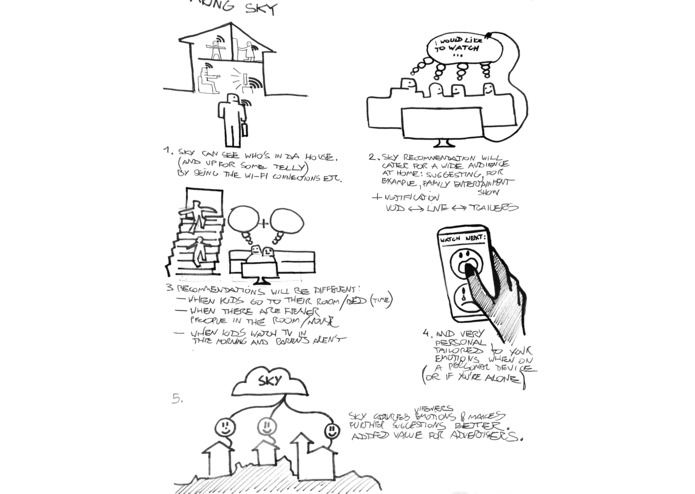 SKY
1. SKY CAN SEE WHO'S IN DA HOUSE.
(AND UP FOR SOME TELLY)
BY USING THE WI-FI CONNECTIONS ETC.
I WOULD LIKE
TO WATCH
...
2. SKY RECOMMENDATION WILL
CATER FOR A WIDE AUDIENCE
AT HOME: SUGGESTING, FOR
EXAMPLE, FAMILY ENTERTAINMENT
SHOW
+ NOTIFICATION
VOD ↔ LIVE ↔ TRAILERS
+
3 RECOMMENDATIONS WILL BE DIFFERENT:
— WHEN KIDS GO TO THEIR ROOM/BED (TIME)
— WHEN THERE ARE FEWER
PEOPLE IN THE ROOM/HOUSE
— WHEN KIDS WATCH TV IN
THE MORNING AND PARENTS AREN'T
WATCH NEXT:
4. AND VERY
PERSONAL
TAILORED TO YOUR
EMOTIONS WHEN ON
A PERSONAL DEVICE
(OR IF YOU'RE ALONE)
5.
SKY
VIEWERS
SKY EMOTIONS & MAKES
FURTHER SUGGESTIONS BETTER.
ADDED VALUE FOR ADVERTISERS.